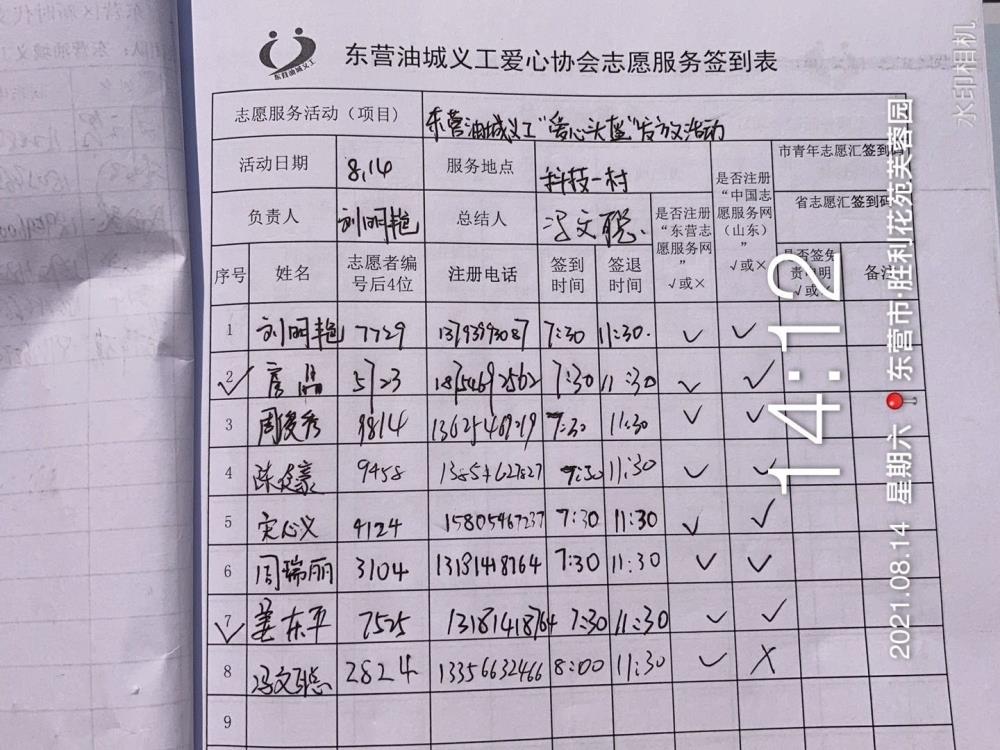 东营油城义工
东营油城义工爱心协会志愿服务签到表
志愿服务活动（项目） 东营油城义工"爱心头盔"发放活动
活动日期 8.14 服务地点 科技一村 是否注册"中国志愿服务网（山东）" √或× 市青年志愿汇签到码
负责人 刘明艳 总结人 冯文聪 是否注册"东营志愿服务网" √或× 省志愿汇签到码
序号 姓名 志愿者编号后4位 注册电话 签到时间 签退时间 是否签免责申明 √或× 备注
1 刘明艳 7729 13793993087 7:30 11:30. √ √
2 5723 18754692562 7:30 11:30 √ √
3 周俊秀 9814 7:30 11:30 √ √
4 9458 13854627827 7:30 11:30 √ √
5 宋心义 4124 15805467237 7:30 11:30 √ √
6 周瑞丽 3104 13181418764 7:30 11:30 √ √
7 姜东平 7525 13181418764 7:30 11:30 √ √
8 冯文聪 2824 13356632466 8:00 11:30 √ ×
9
14:12
2021.08.14 星期六 东营市·胜利花苑芙蓉园
水印相机